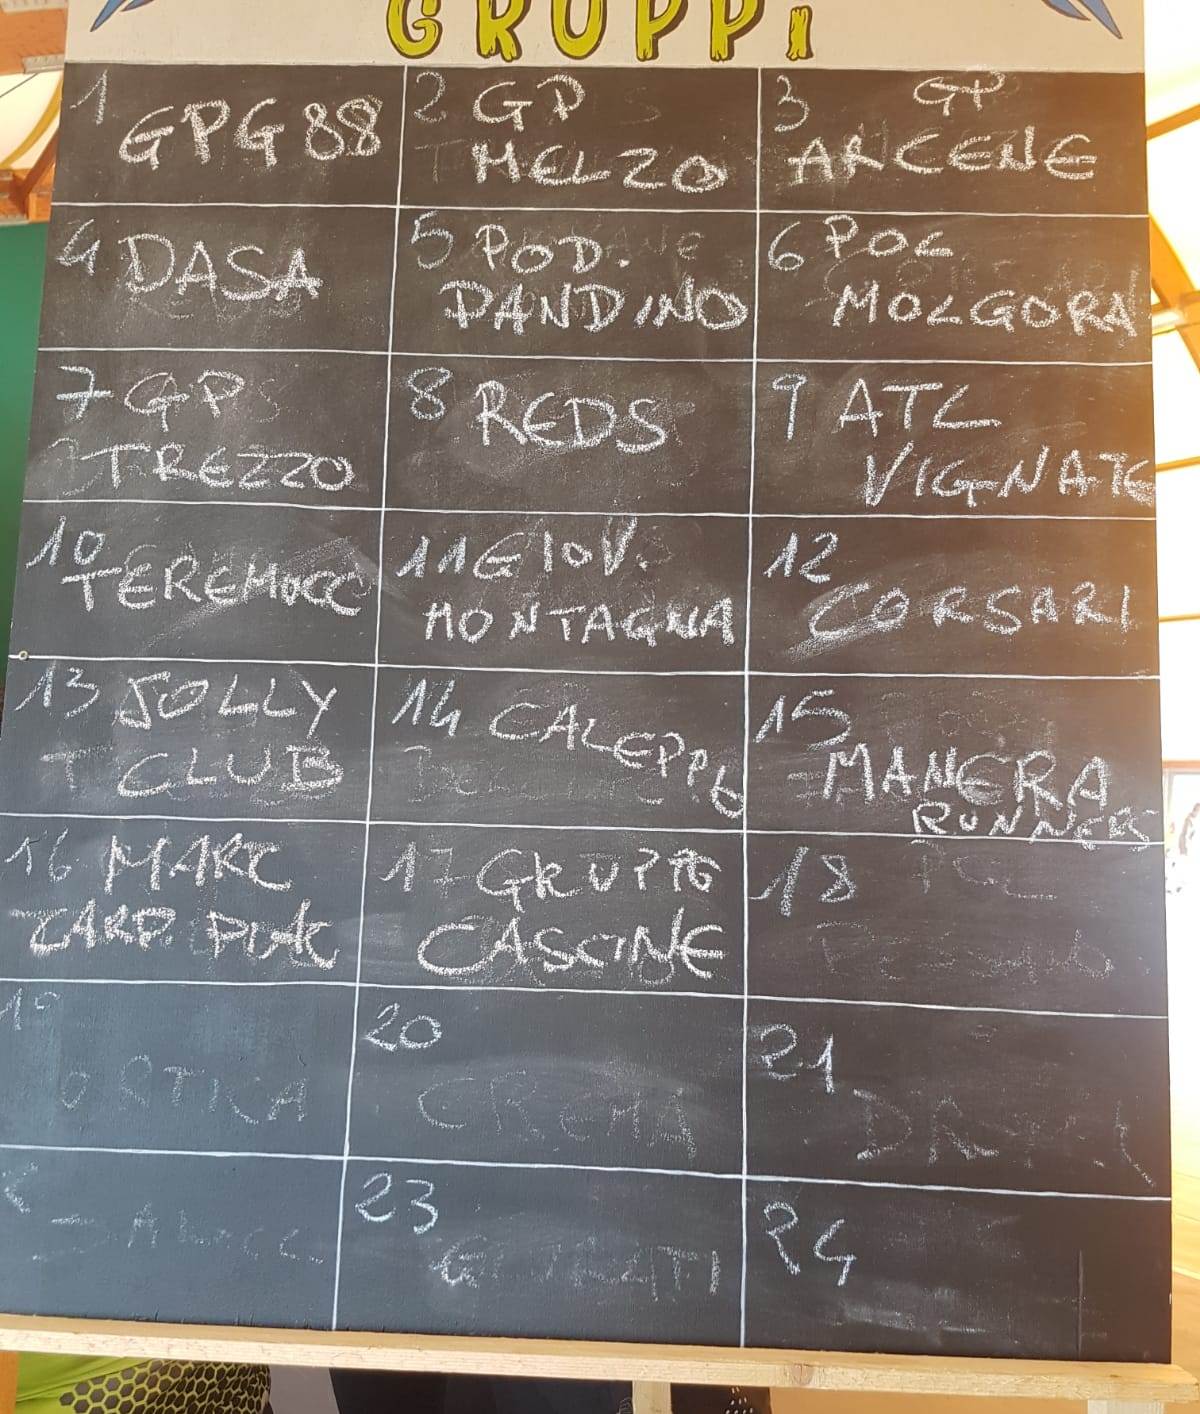 GRUPPi
1 GPG 88
2 GP
MELZO
3 GP
ARCENE
4 DASA
5 POD.
PANDINO
6 POL
MOLGORA
7 GP
TREZZO
8 REDS
9 ATL
VIGNATE
10
TEREMOCC
11 GIOV.
MONTAGNA
12
CORSARI
13 JOLLY
CLUB
14 CALEPPIO
15
MANERA
RUNNERS
16 MARC
17 GRUPPO
CASCINE
18
19
ORTICA
20
CREMA
21
23
24